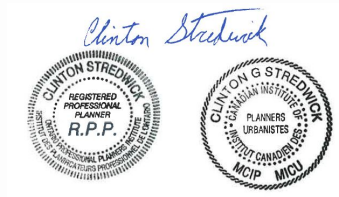 Clinton Stredwick
CLINTON STREDWICK
REGISTERED
PROFESSIONAL
PLANNER
R.P.P.
ONTARIO PROFESSIONAL PLANNERS INSTITUTE
INSTITUT DES PLANIFICATEURS PROFESSIONNELS DE L'ONTARIO
CLINTON G STREDWICK
CANADIAN INSTITUTE OF
PLANNERS
URBANISTES
INSTITUT CANADIEN DES
MCIP MICU